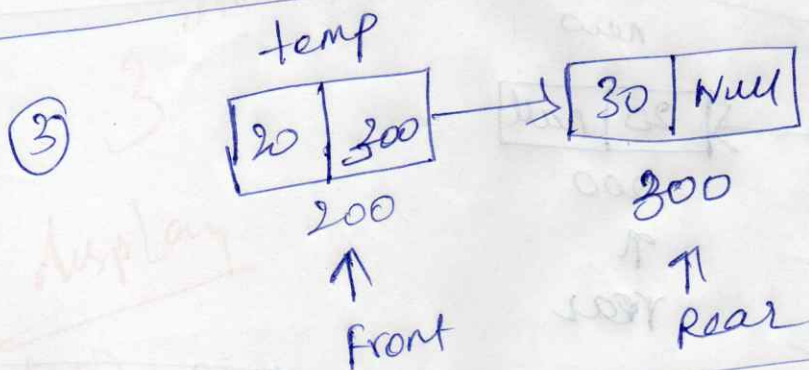 temp
③ 20 300 30 Null
200 300
Front Rear